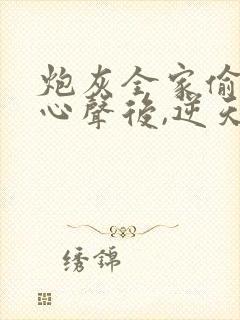 炮灰全家偷
心聲後,逆天
绣錦